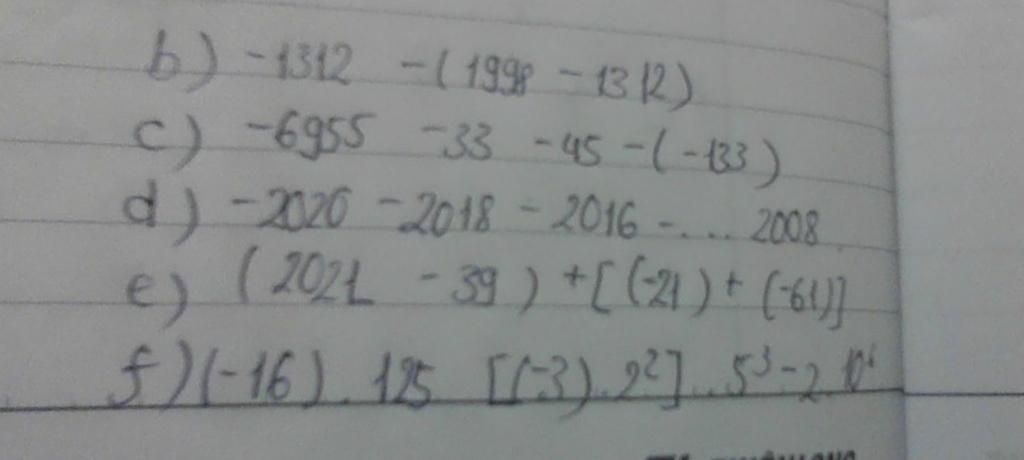 b) -1312 - (1998 - 1312)
c) -6955 - 33 - 45 - (-133)
d) -2020 - 2018 - 2016 - .... 2008
e) (2021 - 39) + [(-21) + (-61)]
f) (-16) . 125 [(-3) . 2²] . 5³ - 2 . 10⁶